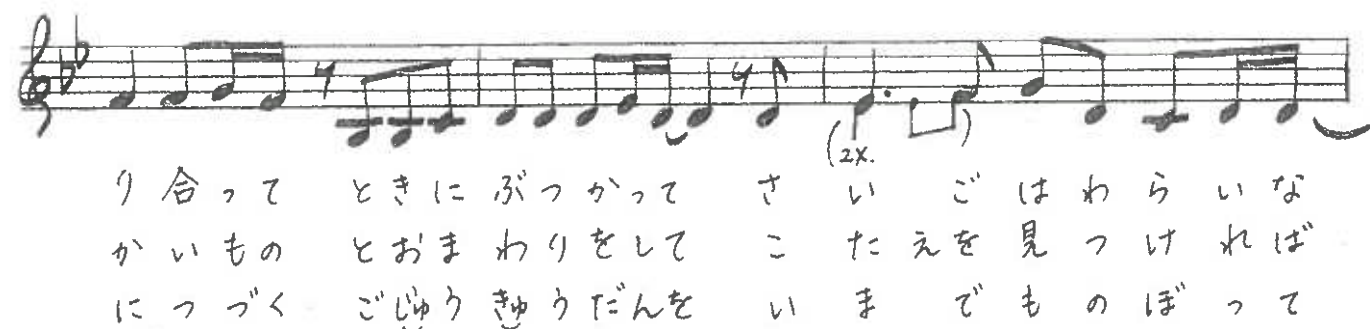 (2x. )
り合って ときに ぶつかって さいごはわらいな
かいもの とおまわりをして こたえを見つければ
につづく ごじゅうきゅうだんを いまでものぼって